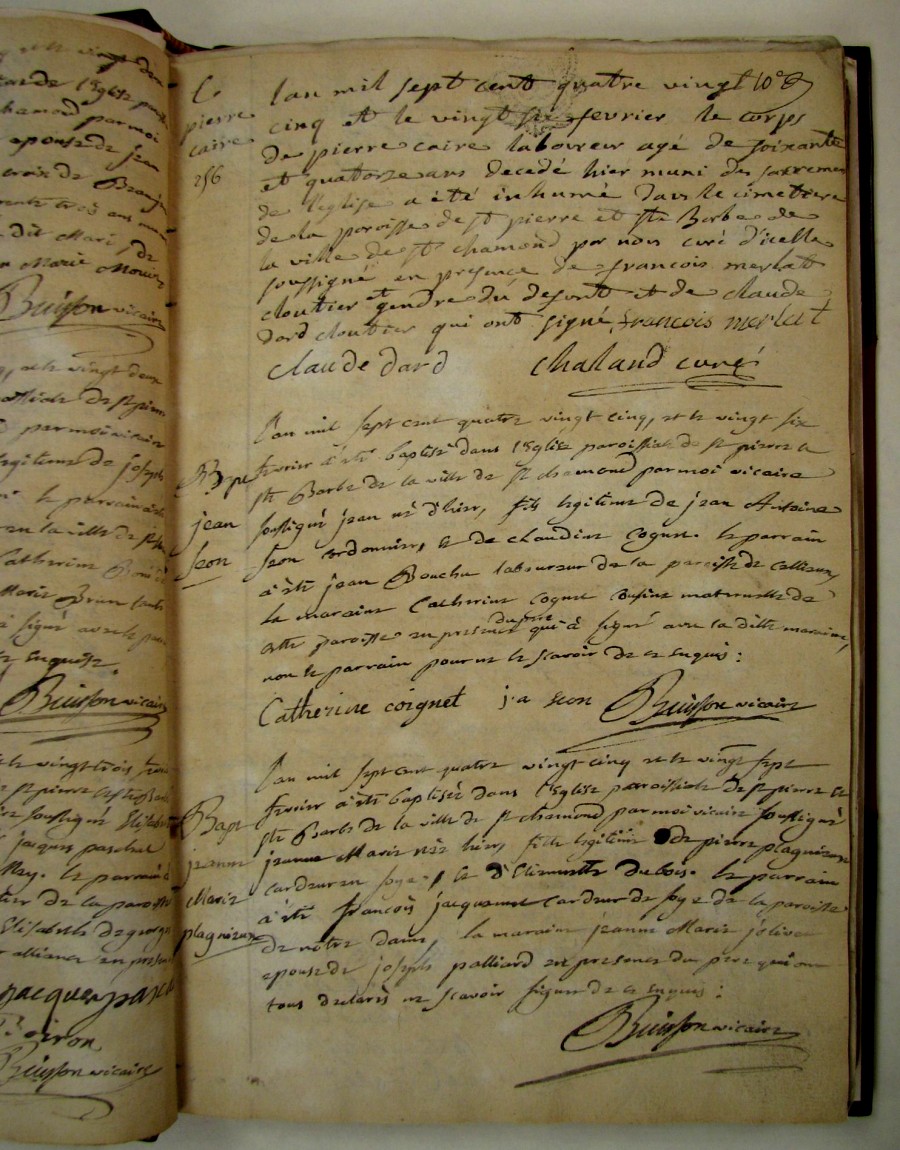 y et le vingt deux
de l'Eglise
chamond par moi
epouse de jean
croix de
trente trois ans
dit Mari de
Marie
Buisson vicaire
et le vingt deux
de st pierre
par moi vicaire
legitime de joseph
le parrain a été
en la ville de st
Catherine
Marie Brun
signé avec le
ce Enquise.
Buisson vicaire
et le vingt trois fevrier
st pierre
soussigné Elizabeth
jacques paschal
May. le parrain a
de la paroisse
Elisabeth de
alliance en presence
jacques
Buisson vicaire
C.
pierre
caire
256
l'an mil sept cent quatre vingt 10e
cinq et le vingt six fevrier le corps
de pierre caire laboureur agé de soixante
et quatorze ans decedé hier muni des sacremens
de l'eglise a été inhumé dans le cimetiere
de la paroisse de st pierre et ste Barbe de
la ville de st chamond par nous curé d'icelle
soussigné en presence de francois merlat
cloutier et gendre du defunt et de claude
dard cloutier qui ont signé, francois merlat
claude dard chaland curé
Bapt
jean
seon
l'an mil sept cent quatre vingt cinq, et le vingt six
fevrier a été baptisé dans l'Eglise paroissiale de st pierre et
ste Barbe de la ville de st chamond par moi vicaire
soussigné jean né d'hier, fils legitime de jean Antoine
seon cordonnier, et de claudine cognet. le parrain
a été jean Bouchu laboureur de la paroisse de cellieux,
la maraine Catherine cognet cousine maternelle de
cette paroisse en presence du pere qui a signé avec la ditte maraine,
non le parrain pour ne le scavoir de ce enquis :
Catherine coignet j. a seon Buisson vicaire
Bapt
jeanne
Marie
plagnieux
l'an mil sept cent quatre vingt cinq et le vingt sept
fevrier a été baptisée dans l'Eglise paroissiale de st pierre et
ste Barbe de la ville de st chamond par moi vicaire soussigné
jeanne Marie née hier, fille legitime de pierre plagnieux
cardeur en soye, et d'Etiennette dubois. le parrain
a été francois jacquemet cardeur de soye de la paroisse
de notre dame, la maraine jeanne Marie jolivet
epouse de joseph palliard en presence du pere qui ont
tous declaré ne scavoir signer de ce enquis :
Buisson vicaire